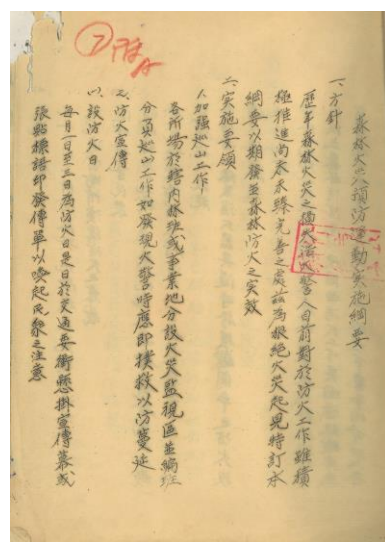 森林火災預防運動實施綱要
一、方針
歷年森林火災之損失浩大驚人目前對於防火工作雖積
極推進尚未臻完善之處茲為根絕火災起見特訂本
綱要以期發並森林防火之實效
二、实施要領
1.加强巡山工作
各所場於轄內林班或事業地分設火災監視區並編班
分頁巡山工作如發現火警時應即撲救以防蔓延
2.防火宣傳
(1)、設防火日
每月一日至三日為防火日是日於交通要衝懸掛宣傳幕或
張貼標語印發傳單以喚起民眾之注意